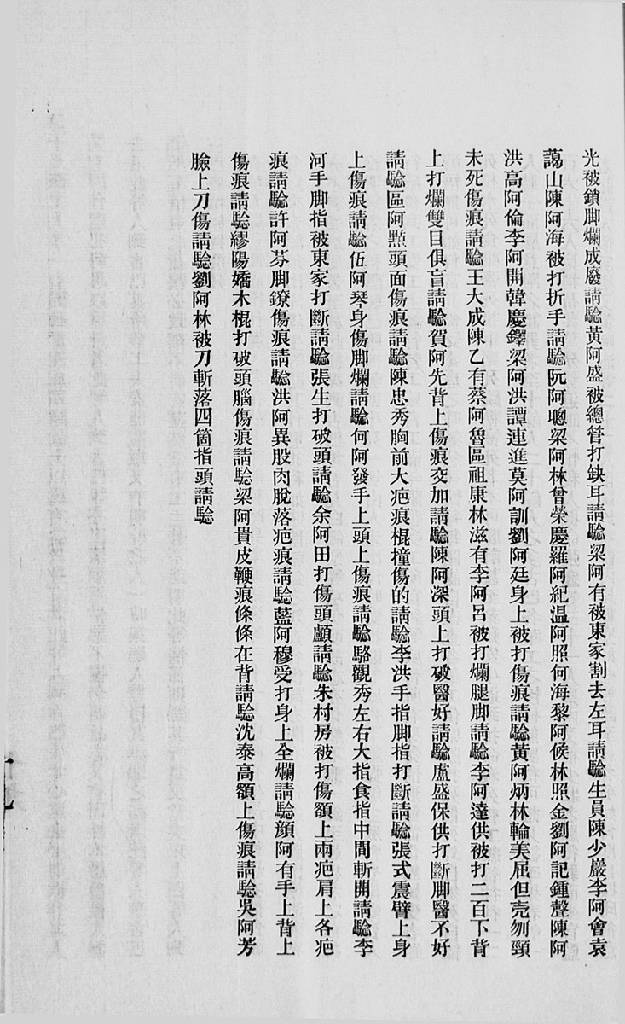 光被鎖脚爛成廢請驗黃阿盛被總管打缺耳請驗梁阿有被東家割去左耳請驗生員陳少巖李阿會袁
蕩山陳阿海被打折手請驗阮阿聰梁阿林曾榮慶羅阿紀温阿照何海黎阿候林照金劉阿記鍾聲陳阿
洪高阿倫李阿開韓慶鐸梁阿洪譚連進莫阿訓劉阿廷身上被打傷痕請驗黃阿炳林輪美屈但売刎頸
未死傷痕請驗王大成陳乙有蔡阿魯區祖康林滋有李阿呂被打爛腿脚請驗李阿達供被打二百下背
上打爛雙目俱盲請驗賀阿先背上傷痕交加請驗陳阿深頭上打破醫好請驗盧盛保供打斷脚醫不好
請驗區阿㸃頭面傷痕請驗陳忠秀胸前大疤痕棍撞傷的請驗李洪手指脚指打斷請驗張式震臂上身
上傷痕請驗伍阿琴身傷脚爛請驗何阿發手上頭上傷痕請驗駱觀秀左右大指食指中間斬開請驗李
河手脚指被東家打斷請驗張生打破頭請驗余阿田打傷頭顱請驗朱村房被打傷額上兩疤肩上各疤
痕請驗許阿芬脚鐐傷痕請驗洪阿異股肉脫落疤痕請驗藍阿穆受打身上全爛請驗顏阿有手上背上
傷痕請驗繆陽嬌木棍打破頭腦傷痕請驗梁阿貴皮鞭痕條條在背請驗沈泰高額上傷痕請驗吳阿芳
臉上刀傷請驗劉阿林被刀斬落四箇指頭請驗